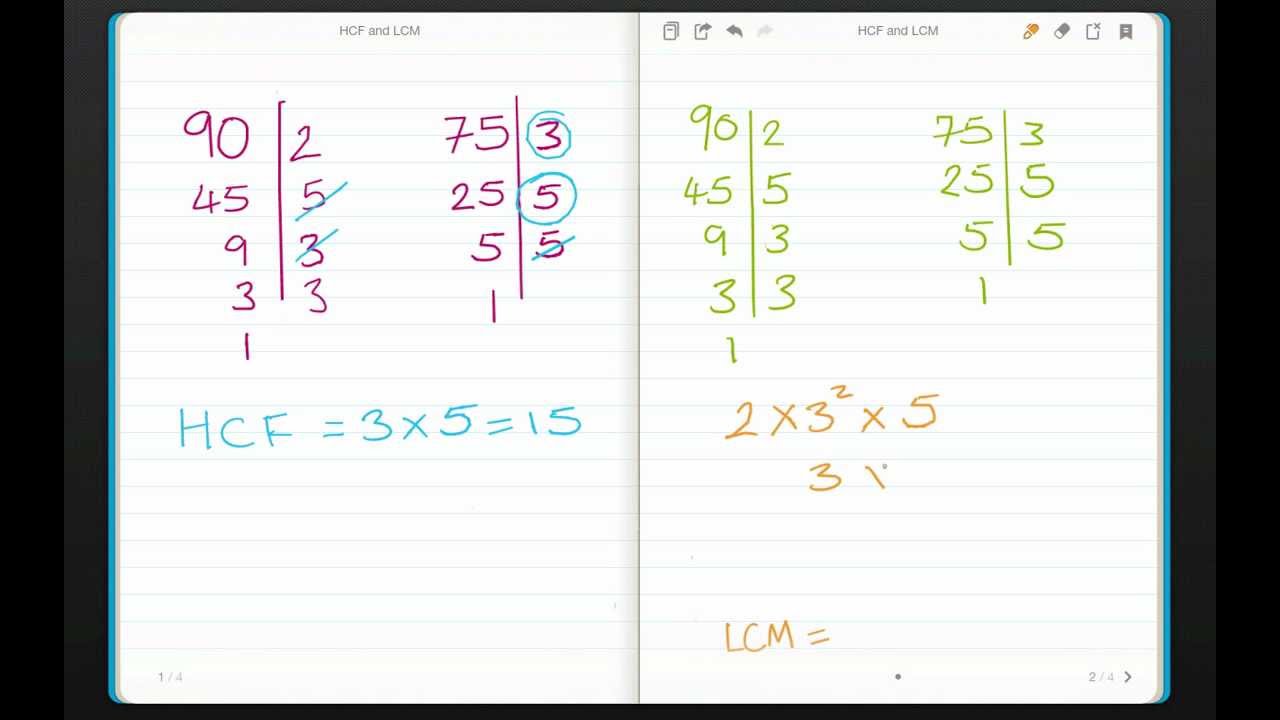 HCF and LCM
90 2 75 3
45 5 25 5
9 3 5 5
3 3 1
1
HCF = 3 × 5 = 15
1 / 4
HCF and LCM
90 2 75 3
45 5 25 5
9 3 5 5
3 3 1
1
2 × 3² × 5
3
LCM =
2 / 4